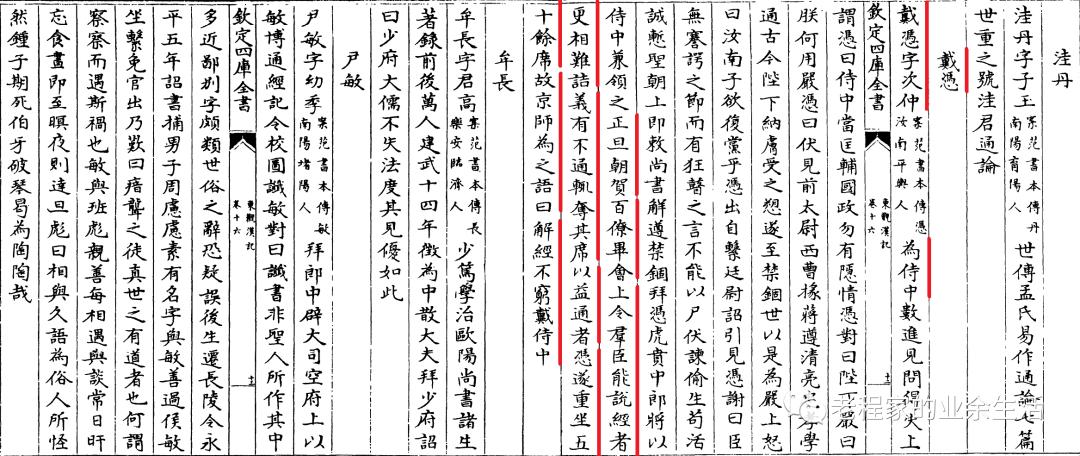 洼丹
洼丹字子玉案范書本傳丹南陽育陽人世傳孟氏易作通論七篇
世重之號洼君通論
戴憑
戴憑字次仲案范書本傳憑汝南平輿人為侍中數進見問得失上
欽定四庫全書
東觀漢記
卷十六
十一
謂憑曰侍中當匡輔國政勿有隱情憑對曰陛下嚴曰
朕何用嚴憑曰伏見前太尉西曹掾蔣遵清亮忠孝學
通古今陛下納膚受之愬遂至禁錮世以是為嚴上怒
曰汝南子欲復黨乎憑出自繫廷尉詔引見憑謝曰臣
無謇諤之節而有狂瞽之言不能以尸伏諫偷生苟活
誠慙聖朝上即敕尚書解遵禁錮拜憑虎賁中郎將以
侍中兼領之正旦朝賀百僚畢會上令羣臣能說經者
更相難詰義有不通輒奪其席以益通者憑遂重坐五
十餘席故京師為之語曰解經不窮戴侍中
牟長
牟長字君高案范書本傳長樂安臨濟人少篤學治歐陽尚書諸生
著錄前後萬人建武十四年徵為中散大夫拜少府詔
曰少府大儒不失法度其見優如此
尹敏
尹敏字幼季案范書本傳敏南陽堵陽人拜郎中辟大司空府上以
敏博通經記令校圖讖敏對曰讖書非聖人所作其中
欽定四庫全書
東觀漢記
卷十六
十二
多近鄙别字頗類世俗之辭恐疑誤後生遷長陵令永
平五年詔書捕男子周慮慮素有名字與敏善過侯敏
坐繫免官出乃歎曰瘖聾之徒真世之有道者也何謂
察察而遇斯禍也敏與班彪親善每相遇與談常日旰
忘食晝即至暝夜則達旦彪曰相與久語為俗人所怪
然鍾子期死伯牙破琴曷為陶陶哉
老程家的业余生活